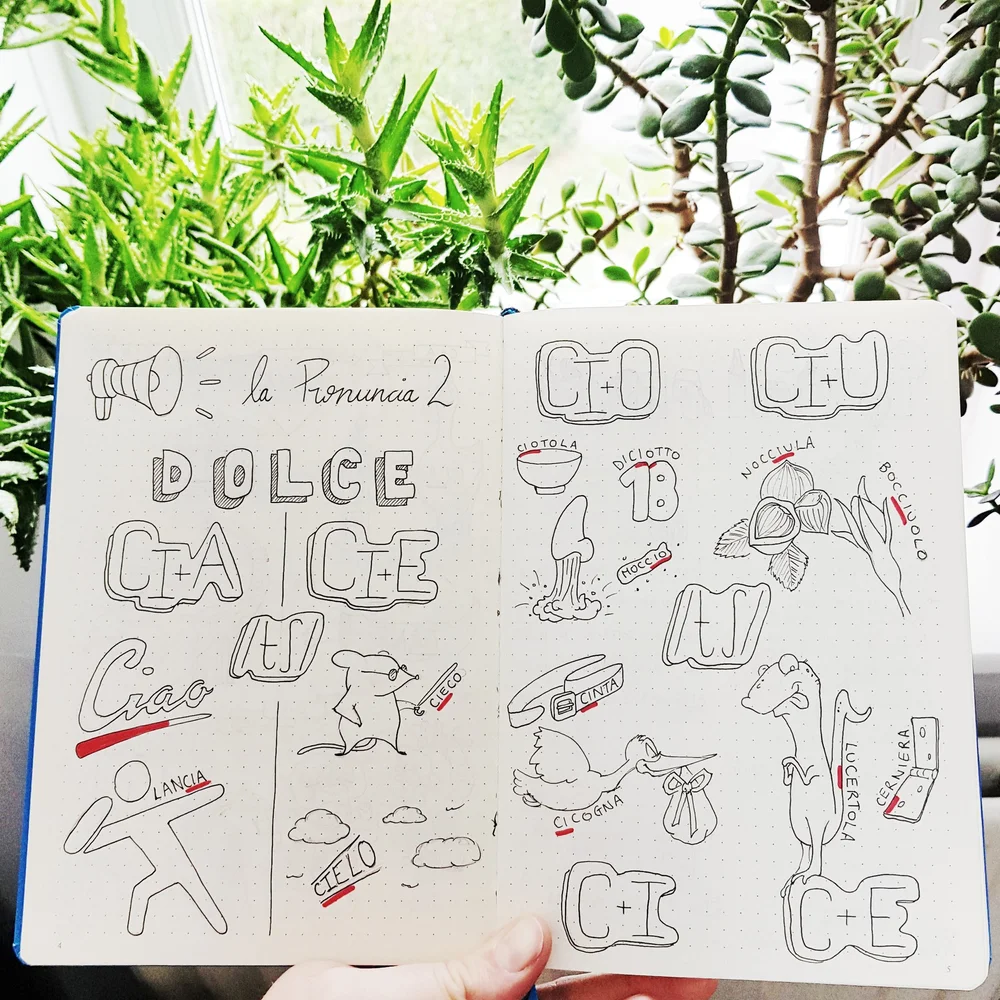 la Pronuncia 2
DOLCE
CI+A
CI+E
[tʃ]
Ciao
CIECO
LANCIA
CIELO
4
CI+O
CI+U
CIOTOLA
DICIOTTO
18
NOCCIULA
BOCCIUOLO
MOCCIO
[tʃ]
CINTA
CICOGNA
LUCERTOLA
CERNIERA
C+I
C+E
5